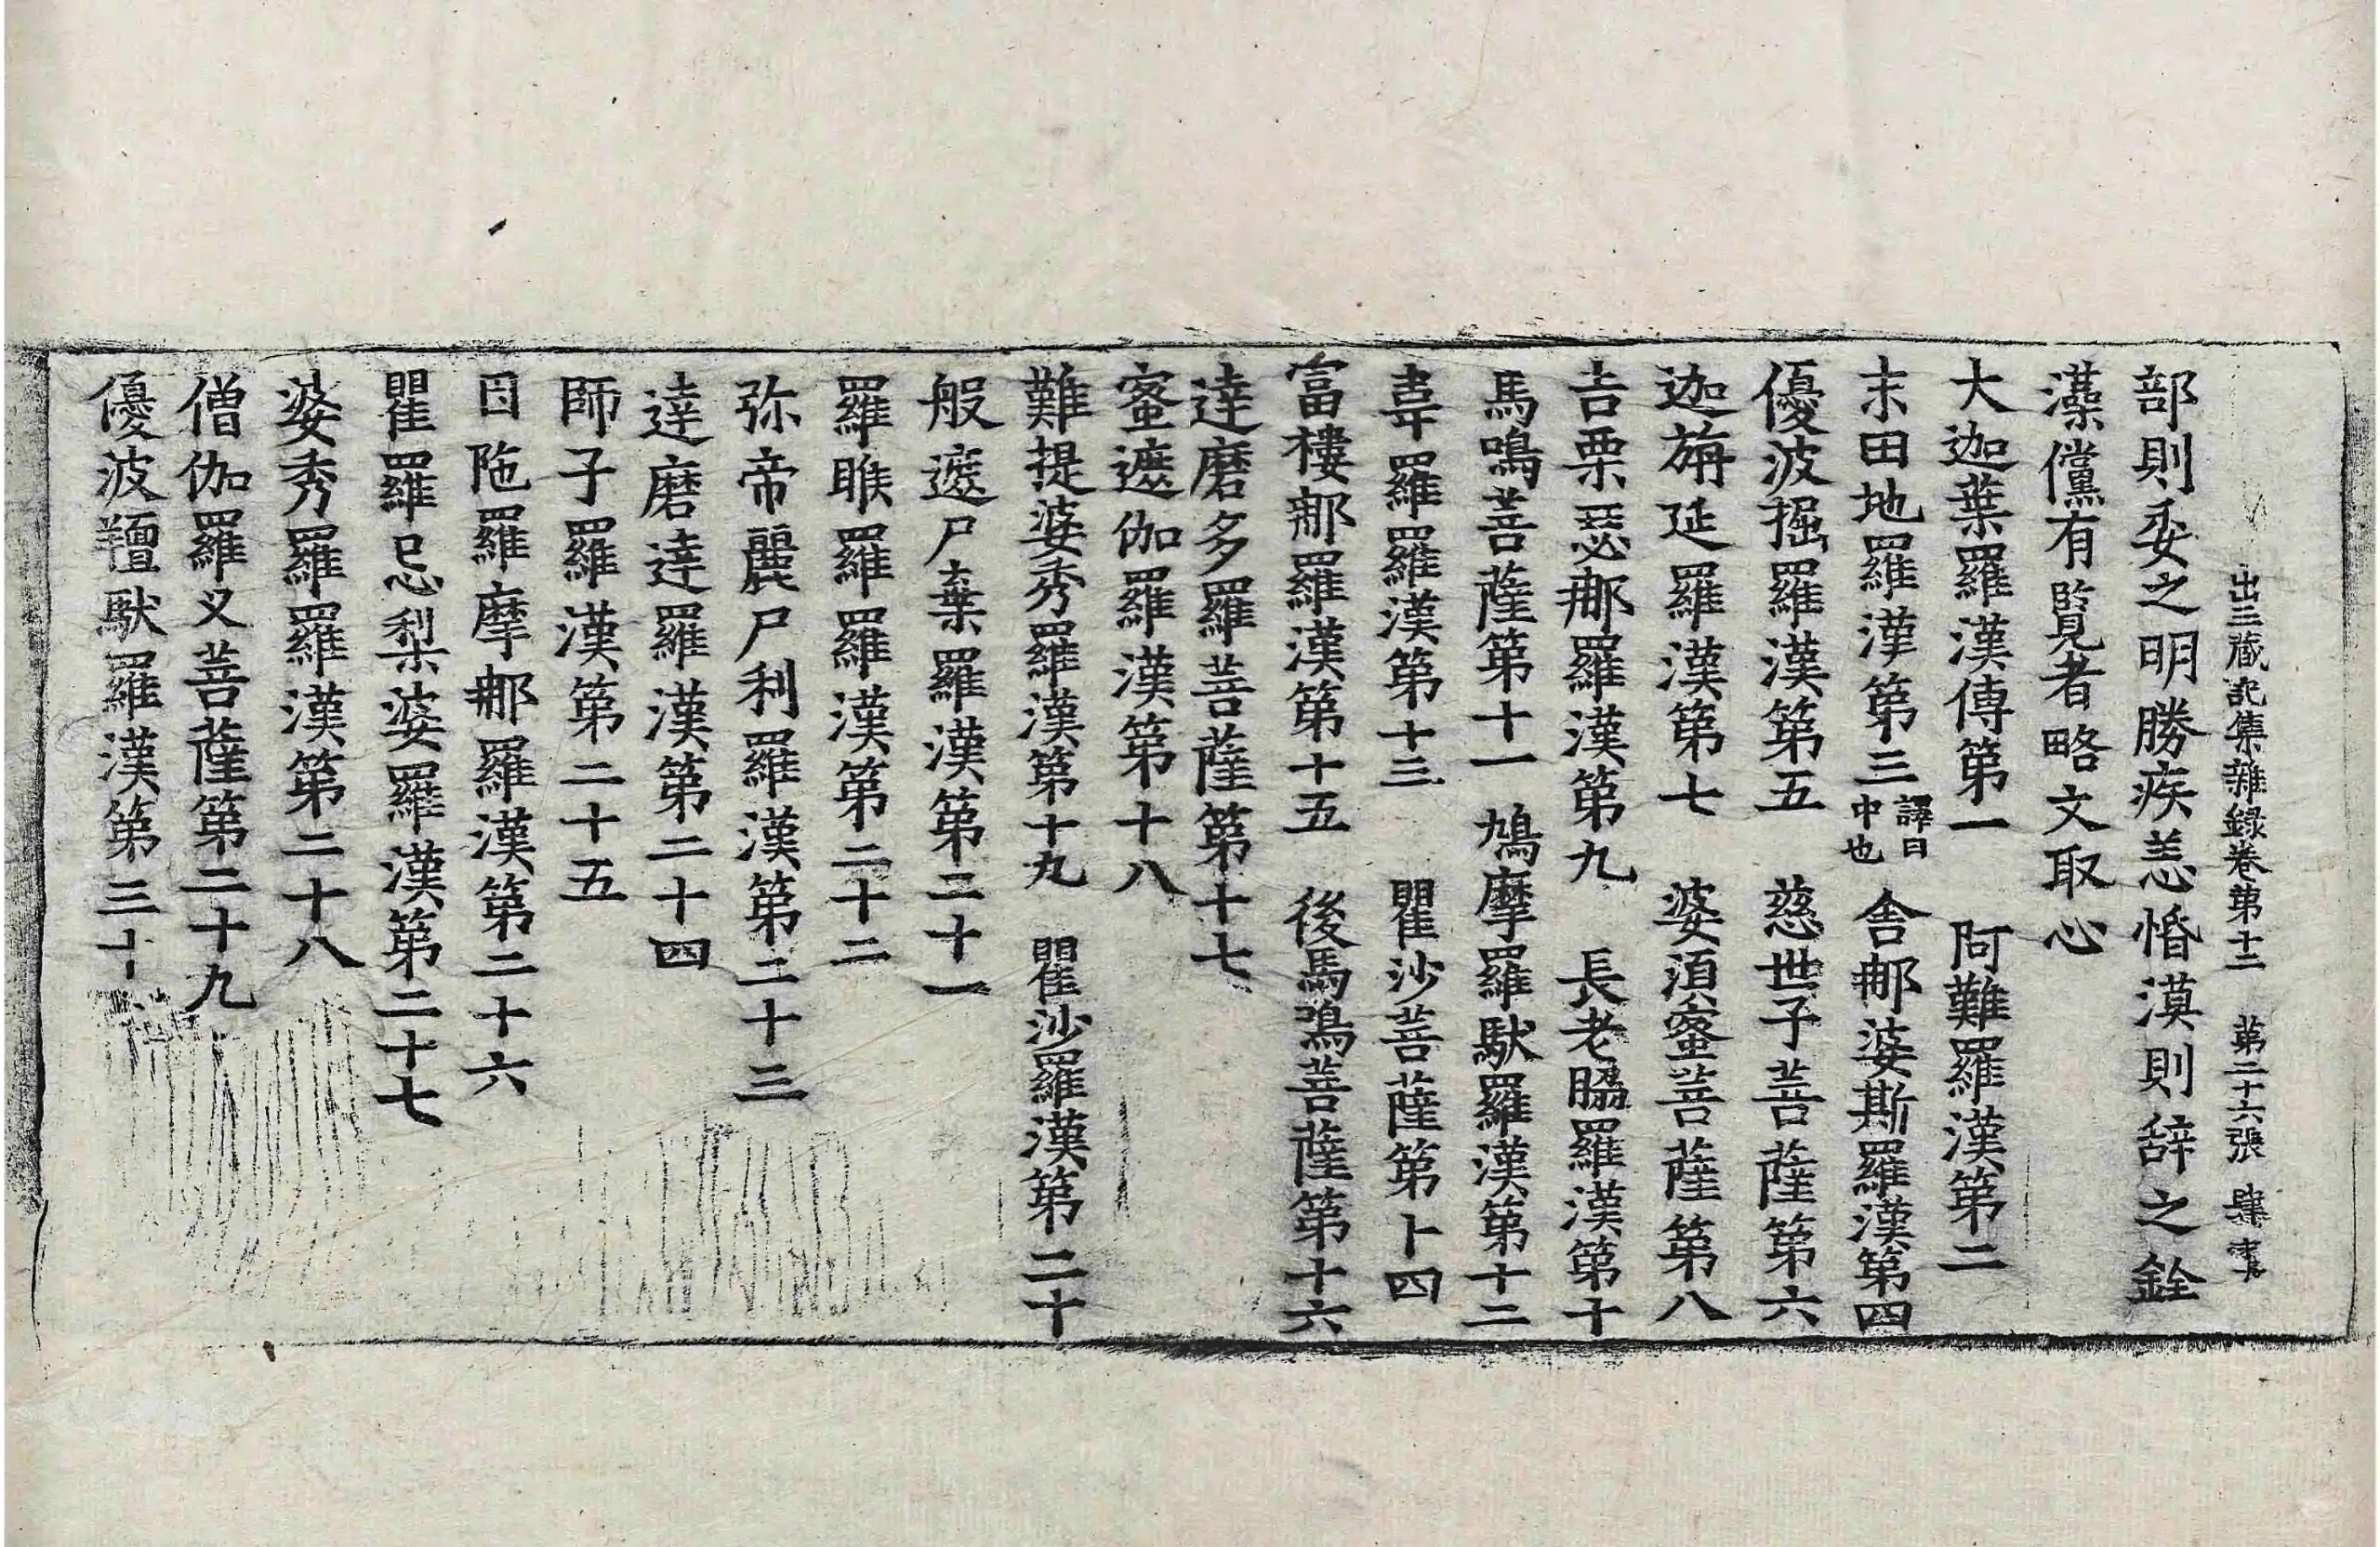 出三藏記集雜録卷第十二　第二十六張　肆
部則委之明勝疾恙惛漠則辞之銓
藻儻有覧者略文取心
大迦葉羅漢傳第一　阿難羅漢第二
末田地羅漢第三譯曰中也　舎那婆斯羅漢第四
優波掘羅漢第五　慈世子菩薩第六
迦旃延羅漢第七　婆湏蜜菩薩第八
吉栗瑟那羅漢第九　長老脇羅漢第十
馬鳴菩薩第十一　鳩摩羅馱羅漢第十二
韋羅羅漢第十三　瞿沙菩薩第十四
富樓那羅漢第十五　後馬鳴菩薩第十六
達磨多羅菩薩第十七
蜜遮伽羅漢第十八
難提婆秀羅漢第十九　瞿沙羅漢第二十
般遮尸棄羅漢第二十一
羅睺羅羅漢第二十二
弥帝麗尸利羅漢第二十三
達磨達羅漢第二十四
師子羅漢第二十五
因陁羅摩那羅漢第二十六
瞿羅忌梨婆羅漢第二十七
婆秀羅羅漢第二十八
僧伽羅义菩薩第二十九
優波羶馱羅漢第三十